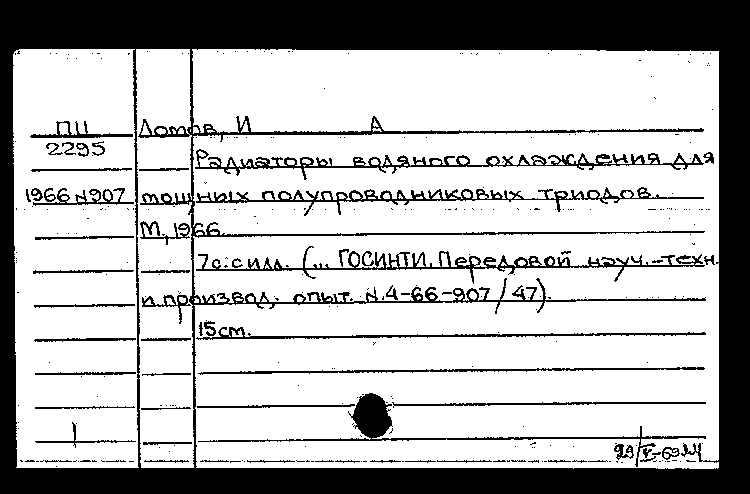 ПЦ Лотов, И А
2295
Радиаторы водяного охлаждения для
1966 N907 мощных полупроводниковых триодов.
М., 1966.
7с. с илл. (... ГОСИНТИ. Передовой науч.-техн.
и производ. опыт. N.4-66-907/47).
15см.